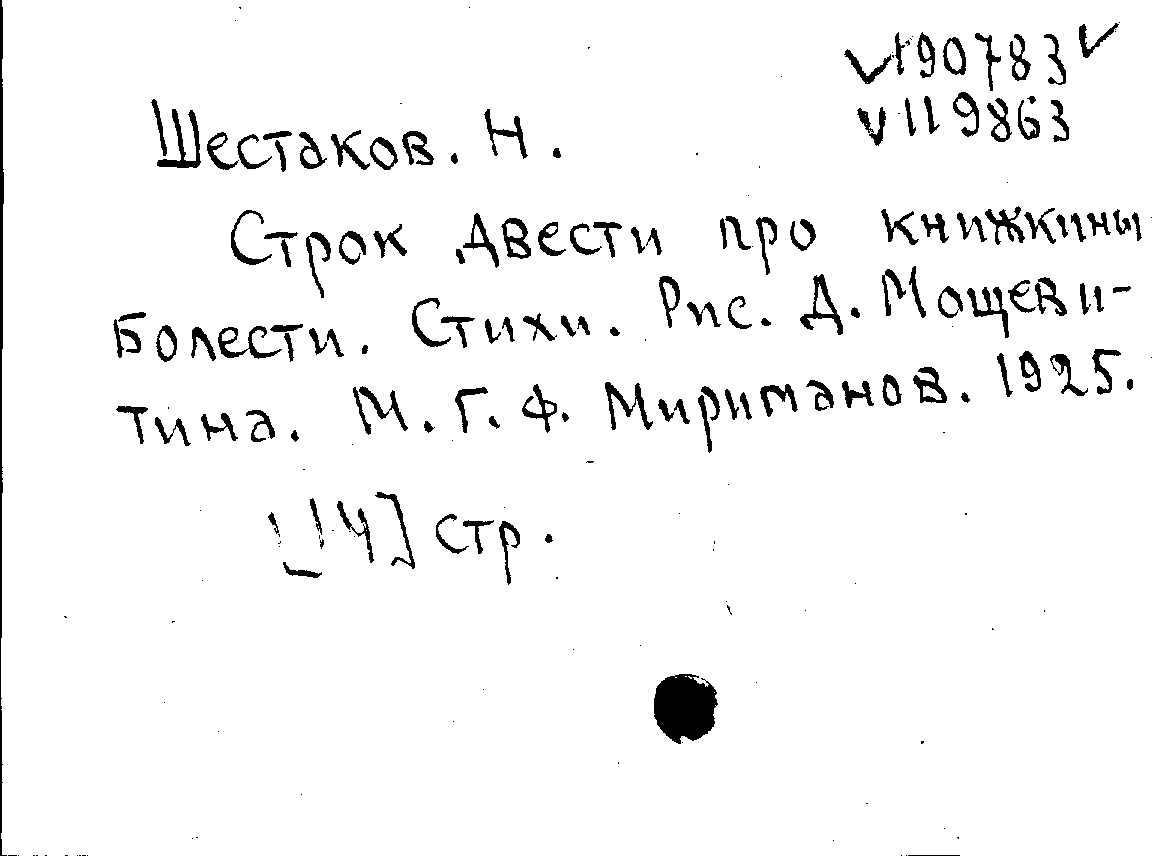 190783
119863
Шестаков. Н.
Строк двести про книжкины
болести. Стихи. Рис. Д. Мощеви-
тина. М. Г. Ф. Мириманов. 1925.
[14] стр.